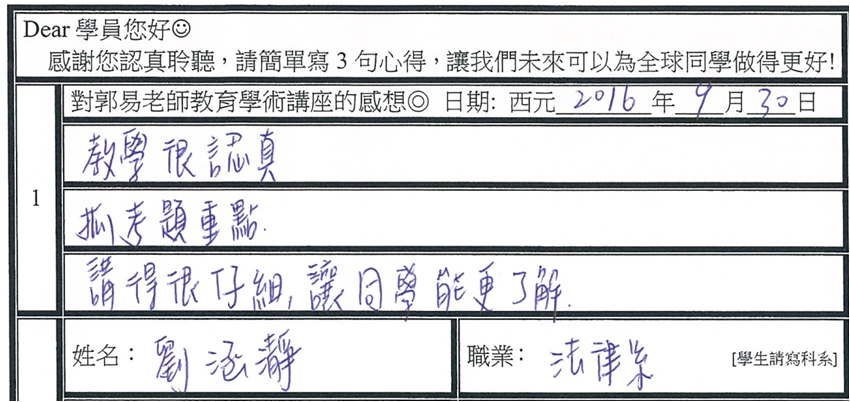 Dear 學員您好☺
感謝您認真聆聽，請簡單寫 3 句心得，讓我們未來可以為全球同學做得更好!
1
對郭易老師教育學術講座的感想◎ 日期: 西元 2016 年 9 月 30 日
教學很認真
抓考題重點.
講得很仔細, 讓同學能更了解.
姓名： 劉涵瀞 職業： 法律系 [學生請寫科系]